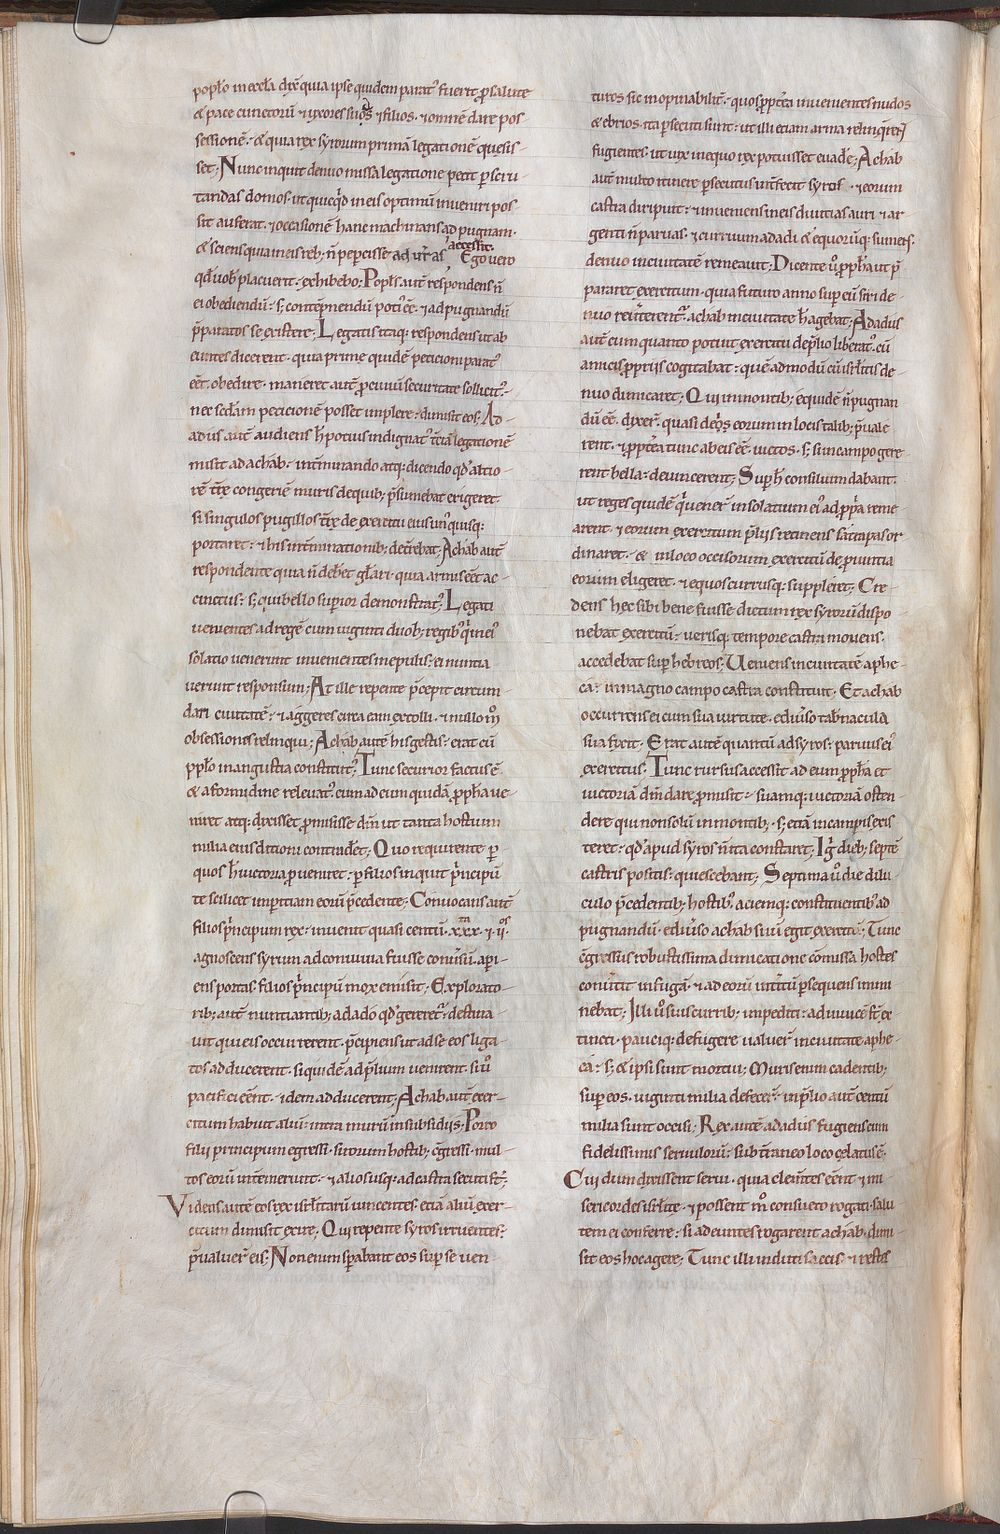 popl̄o in eccl̄a dix̄ quia ipse quidem parat᷒ fuerit ꝓ salute
& pace cunctorū ⁊ uxores suas ⁊ filios · ⁊ omnē dare pos
sessionē · & quia rex syrorum primā legationē quesis-
set; Nunc inquit denuo missa legatione petit perscru
tandas domos · ut quicq̄d in eis optimū inueniri pos
sit auferat · ⁊ occasionē hanc machinans ad pugnam ·
accessit.
& sciens quia meis reb; n̄ pepercisse ad ur̄as Ego uero
qd̄ uob̄ placuerit · exhibebo; Popl̄s aut̄ respondens n̄
ei obediendū · s; contēpnendū poti᷒ ēē · ⁊ ad pugnandū
p̄paratos se existere; Legatis itaq; respondens ut ab
euntes dicerent · quia prime quidē peticioni parat᷒
eēt obedire · maneret autē ꝓ ciuiū securitate sollicit᷒ ·
nec sed̄am peticionē posset implere · dimisit eos; Ad-
adus aut̄ audiens h̄ potius indignat᷒ t̄ciā legationē
misit ad achab · int̄minando atq; dicendo qd̄ altio-
rē · congeriē muris de quib; p̄sumebat erigeret
si singulos pugillos t̄re de exercitu eius un᷒quisq;
portaret · ⁊ his int̄minationib; det̄rebat; Achab aut̄
respondente quia n̄ deb̄et gl̄ari · quia armis eēt ac-
cinctus · s; qui bello superior demonstrat᷒; Legati
uenientes ad regē cum uiginti duob; regib᷒ q̇ in ei᷒
solatio uenerunt inuenientes in epulis · ei nuntia
uerunt responsum; At ille repente p̄cepit circum-
dari ciuitatē · ⁊ aggeres circa eam extolli · ⁊ nullo m̊
obsessiones relinqui; Achab autē his gestis · erat cū
ppl̄o in angustia constitut᷒; Tunc securior factus ē
& a formidine releuat᷒ · cum ad eum quidā ꝓph̄a ue-
niret atq; dixisset promisisse dn̄m ut tanta hostium
milia eius ditioni contrad̄et; Quo requirente p̄
quos h̄ uictoria ꝓueniret · p̄ filios inquit p̄ncipū
te scilicet imperitiam eorū p̄cedente; Conuocans aut̄
filios p̄ncipum rex · inuenit quasi centū · xxx · ⁊ · ii ·
agnoscens syrum ad conuiuia fuisse conuersū · aperi-
ens portas · filios p̄ncipū mox emisit; Explorato-
rib; aut̄ nuntiantib; adado qd̄ gereret᷒ · destina
uit qui eis occurrerent · p̄cipiens ut ad se eos liga-
tos adducerent · si quidē ad p̄lium uenirent · si u̇o
pacifici eēnt · idem adducerent; Achab aut̄ exer-
citum habuit aliū · intra murū in subsidiis · Porro
filii principum egressi · suorum hostib; c̄gressi · mul-
tos eorū int̄emerunt · ⁊ alios usq; ad castra secuti st̄;
Videns autē eos rex isrl̄itarū uincentes · etiā aliū exer-
citum dimisit exire · Qui repente syros irruentes ·
p̄ualuer̄ eis; Non enim sperabant eos super se uen-
turos sic inopinabilit̄ · quos ꝓpt̄ea inuenientes nudos
& ebrios · ita persecuti sunt · ut illi etiam arma relinq̄rent
fugientes · ut uix in equo rex potuisset euad̄e; Achab
aut̄ multo itinere persecutus int̄fecit syros · ⁊ eorum
castra diripuit · ⁊ inueniens in eis diuitias auri ⁊ ar-
genti n̄ paruas · ⁊ curruum adadi & equorūq; sumens ·
denuo in ciuitatē remeauit; Dicente u̇o ꝓph̄a ut p̄
pararet exercitum · quia futuro anno super eū siri de-
nuo reūterent᷒ · achab in ciuitate h̄ agebat; Adadus
aut̄ cum quanto potuit exercitu de p̄lio liberat᷒ · cū
amicis propriis cogitabat · quē admodū cū isrl̄itis de-
nuo dimicaret; Qui in montib; equidē n̄ pugnan
dū eē · dixer̄ · quasi deus eorum in locis talib; p̄uale
rent · ⁊ ꝓpt̄ea tunc ab eis eē uictos · s; si in campo gere-
rent bella · deuincerent; Super h̄ consilium dabant ·
ut reges quidē q̄ uener̄ in solatium ei᷒ ad ꝓpria reme
arent · ⁊ eorum exercitum p̄liis retinens satrapas or
dinaret · & in loco occisorum exercitū de prouintia
eorum eligeret · ⁊ equos currusq; suppleret; Cre-
dens hec sibi bene fuisse dictum rex syrorū dispo
nebat exercitū · uerisq; tempore castra mouens ·
accedebat super hebreos; Veniens in ciuitatē aphe-
ca · in magno campo castra constituit; Et achab
occurrens ei cum sua uirtute · e diūso tab̄nacula
sua fixit; Erat autē quantū ad syros · paruus ei᷒
exercitus; Tunc rursus accessit ad eum ꝓph̄a et
uictoriā dn̄m dare ꝓmisit · suamq; uictoriā osten-
dere qui non solū in montib; · s; etiā in campis exis
teret · qd̄ apud syros n̄ ita constaret; Ig̊ dieb; septē
castris positis · quiescebant; Septima u̇o die dilu-
culo p̄cedentib; hostib᷒ · aciemq; constituentib᷒ ad
pugnandū · e diūso achab suū egit exercitū; Tunc
c̄gressus robustissima dimicatione cōmissa hostes
conūtit in fugā · ⁊ ad eorū int̄itū persequens immi
nebat; Illi u̇o suis currib; impediti · ad inuicē st̄ ex-
tincti · pauciq; defugere ualuer̄ in ciuitate aphe-
cā · s; & ipsi sunt mortui; Muris enim cadentib;
super eos · uiginti milia defecer̄ · in p̄lio aut̄ centū
milia sunt occisi; Rex autē adadus fugiens cum
fidelissimis seruulorū · subt̄raneo loco celatus ē ·
Cui dum dixissent serui · quia clem̄tes eēnt ⁊ mi
sericordes isrl̄ite · ⁊ possent m̊ consueto rogati · salu
tem ei conferre · si adeuntes rogarent achab · dimi-
sit eos hoc agere; Tunc illi induti saccis · ⁊ restes